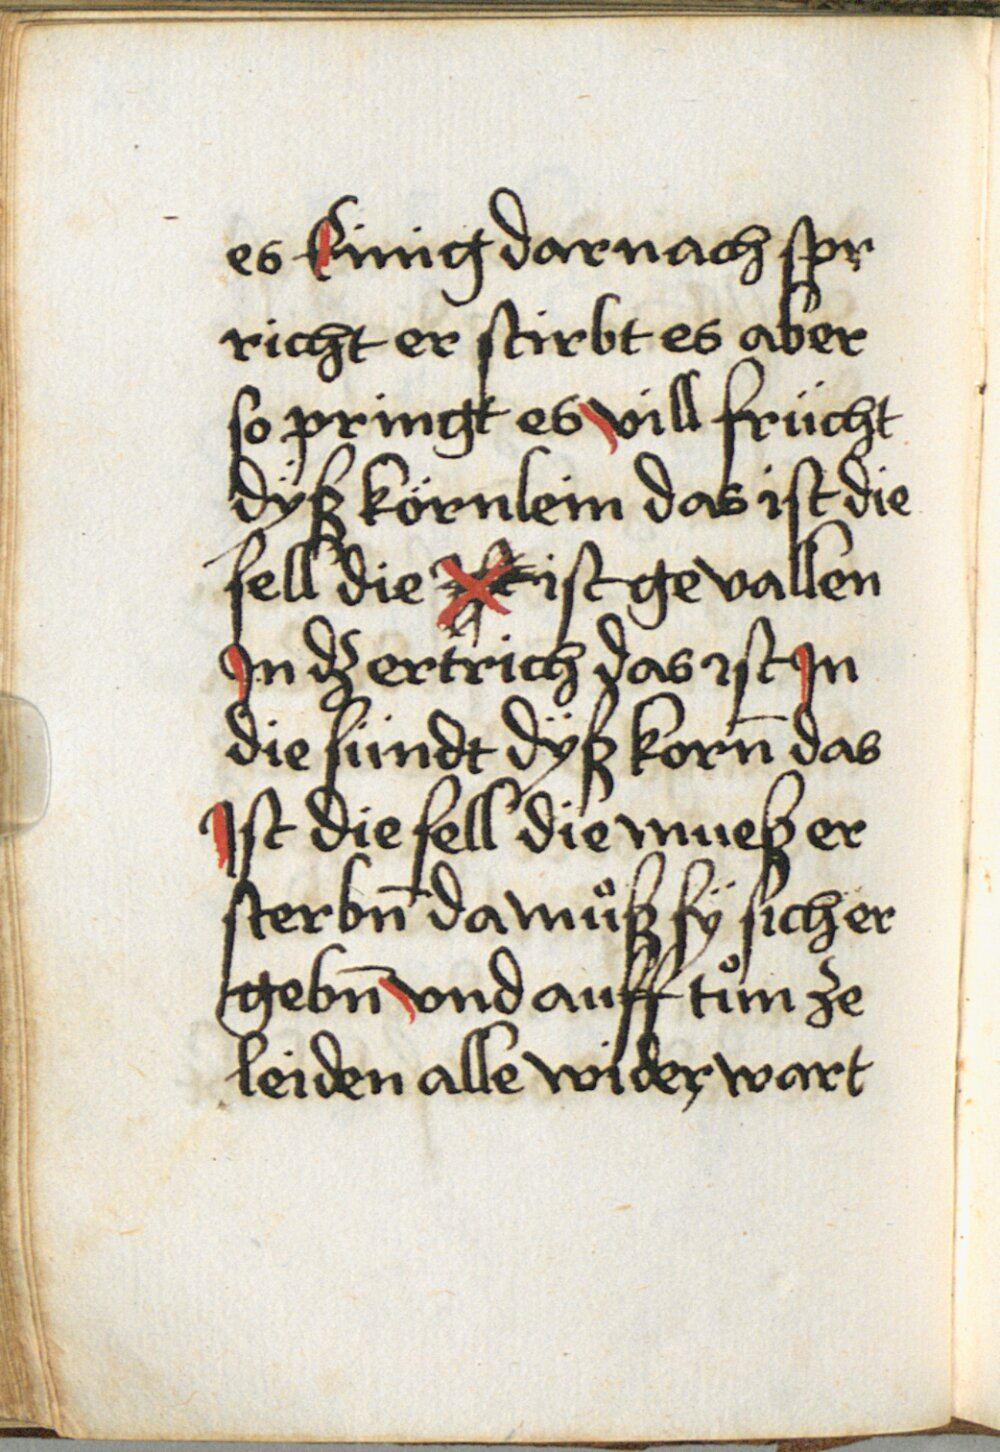 es Einig darnach spr
richt er stirbt es aber
so pringt es vill frücht
dÿß körnlein das ist die
sell die ist gevallen
In dz ertrich das ist In
die sündt dÿß korn̄ das
Ist die sell die mueß er
sterbn̄ da můß sÿ sich er
gebn̄ vnd auff tůn ze
leiden alle wider wart